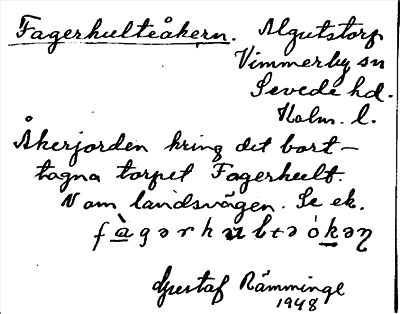 Fagerhulteåkern. Algutstorp
Vimmerby sn
Sevede hd.
Kalm. l.
Åkerjorden kring det bort-
tagna torpet Fagerhult.
V om landsvägen. Se ek.
fàgərhultəókəη
Gustaf Rämminge
1948